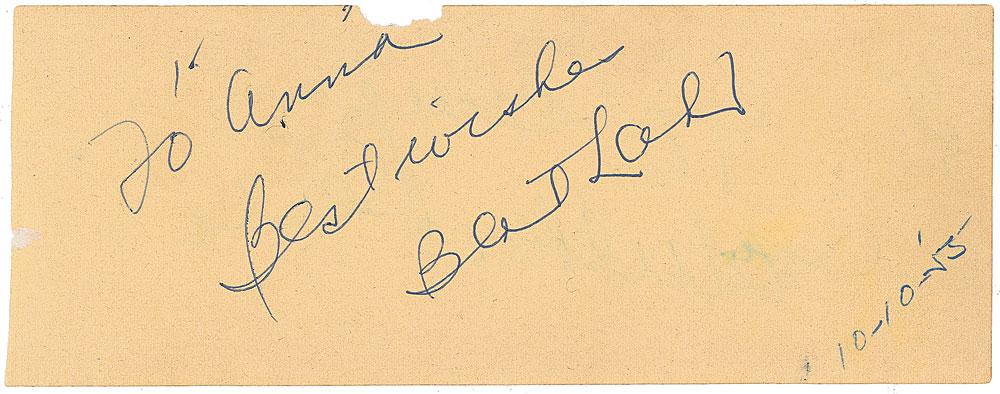 To "Anna"
Best wishes
Bert Lahr
10-10-55